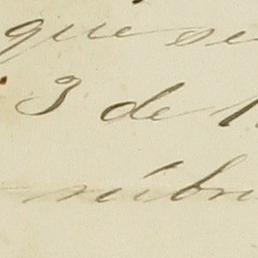 que se
3 de 1
rúbri